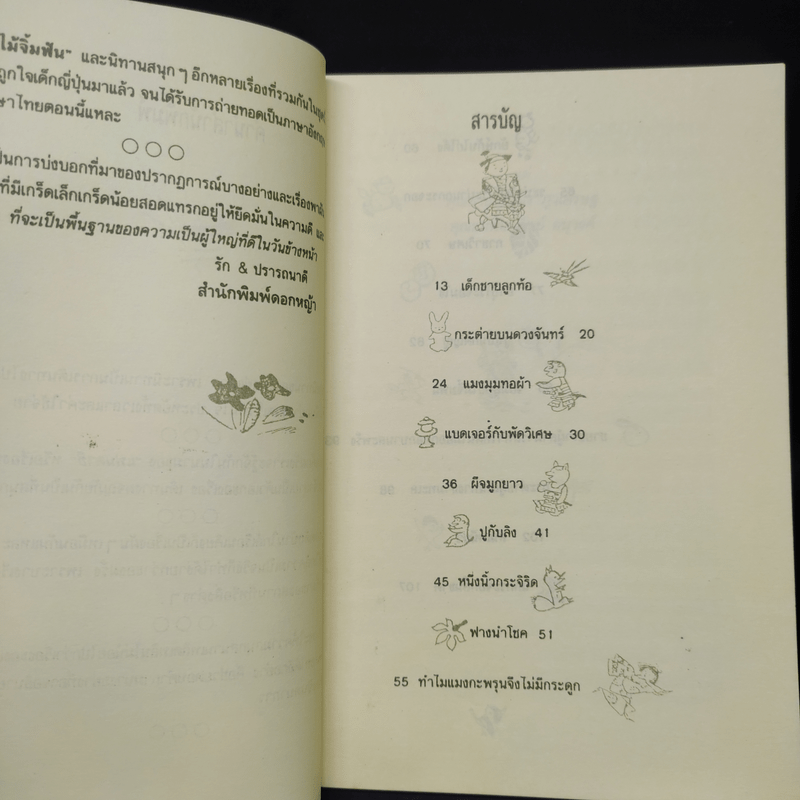 ไม้จิ้มฟัน" และนิทานสนุก ๆ อีกหลายเรื่องที่รวมกันใน
ถูกใจเด็กญี่ปุ่นมาแล้ว จนได้รับการถ่ายทอดเป็นภาษาอังกฤษ
ษาไทยตอนนี้แหละ
○○○
ป็นการบ่งบอกที่มาของปรากฏการณ์บางอย่างและเรื่อง
ที่มีเกร็ดเล็กเกร็ดน้อยสอดแทรกอยู่ให้ยึดมั่นในความดี และ
ที่จะเป็นพื้นฐานของความเป็นผู้ใหญ่ที่ดีในวันข้างหน้า
รัก & ปรารถนาดี
สำนักพิมพ์ดอกหญ้า
สารบัญ
13 เด็กชายลูกท้อ
กระต่ายบนดวงจันทร์ 20
24 แมงมุมทอผ้า
แบดเจอร์กับพัดวิเศษ 30
36 ผีจมูกยาว
ปูกับลิง 41
45 หนึ่งนิ้วกระจิริด
ฟางนำโชค 51
55 ทำไมแมงกะพรุนจึงไม่มีกระดูก